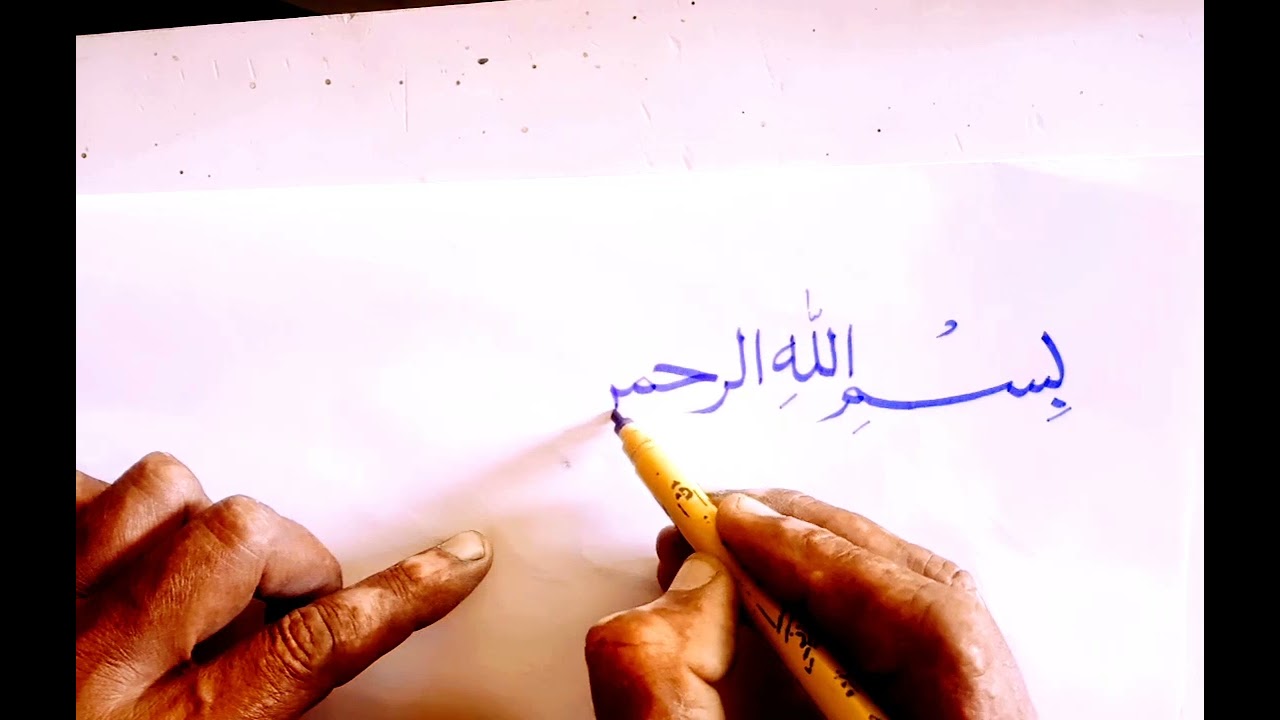 بِسْمِ اللّٰهِ الرحمر